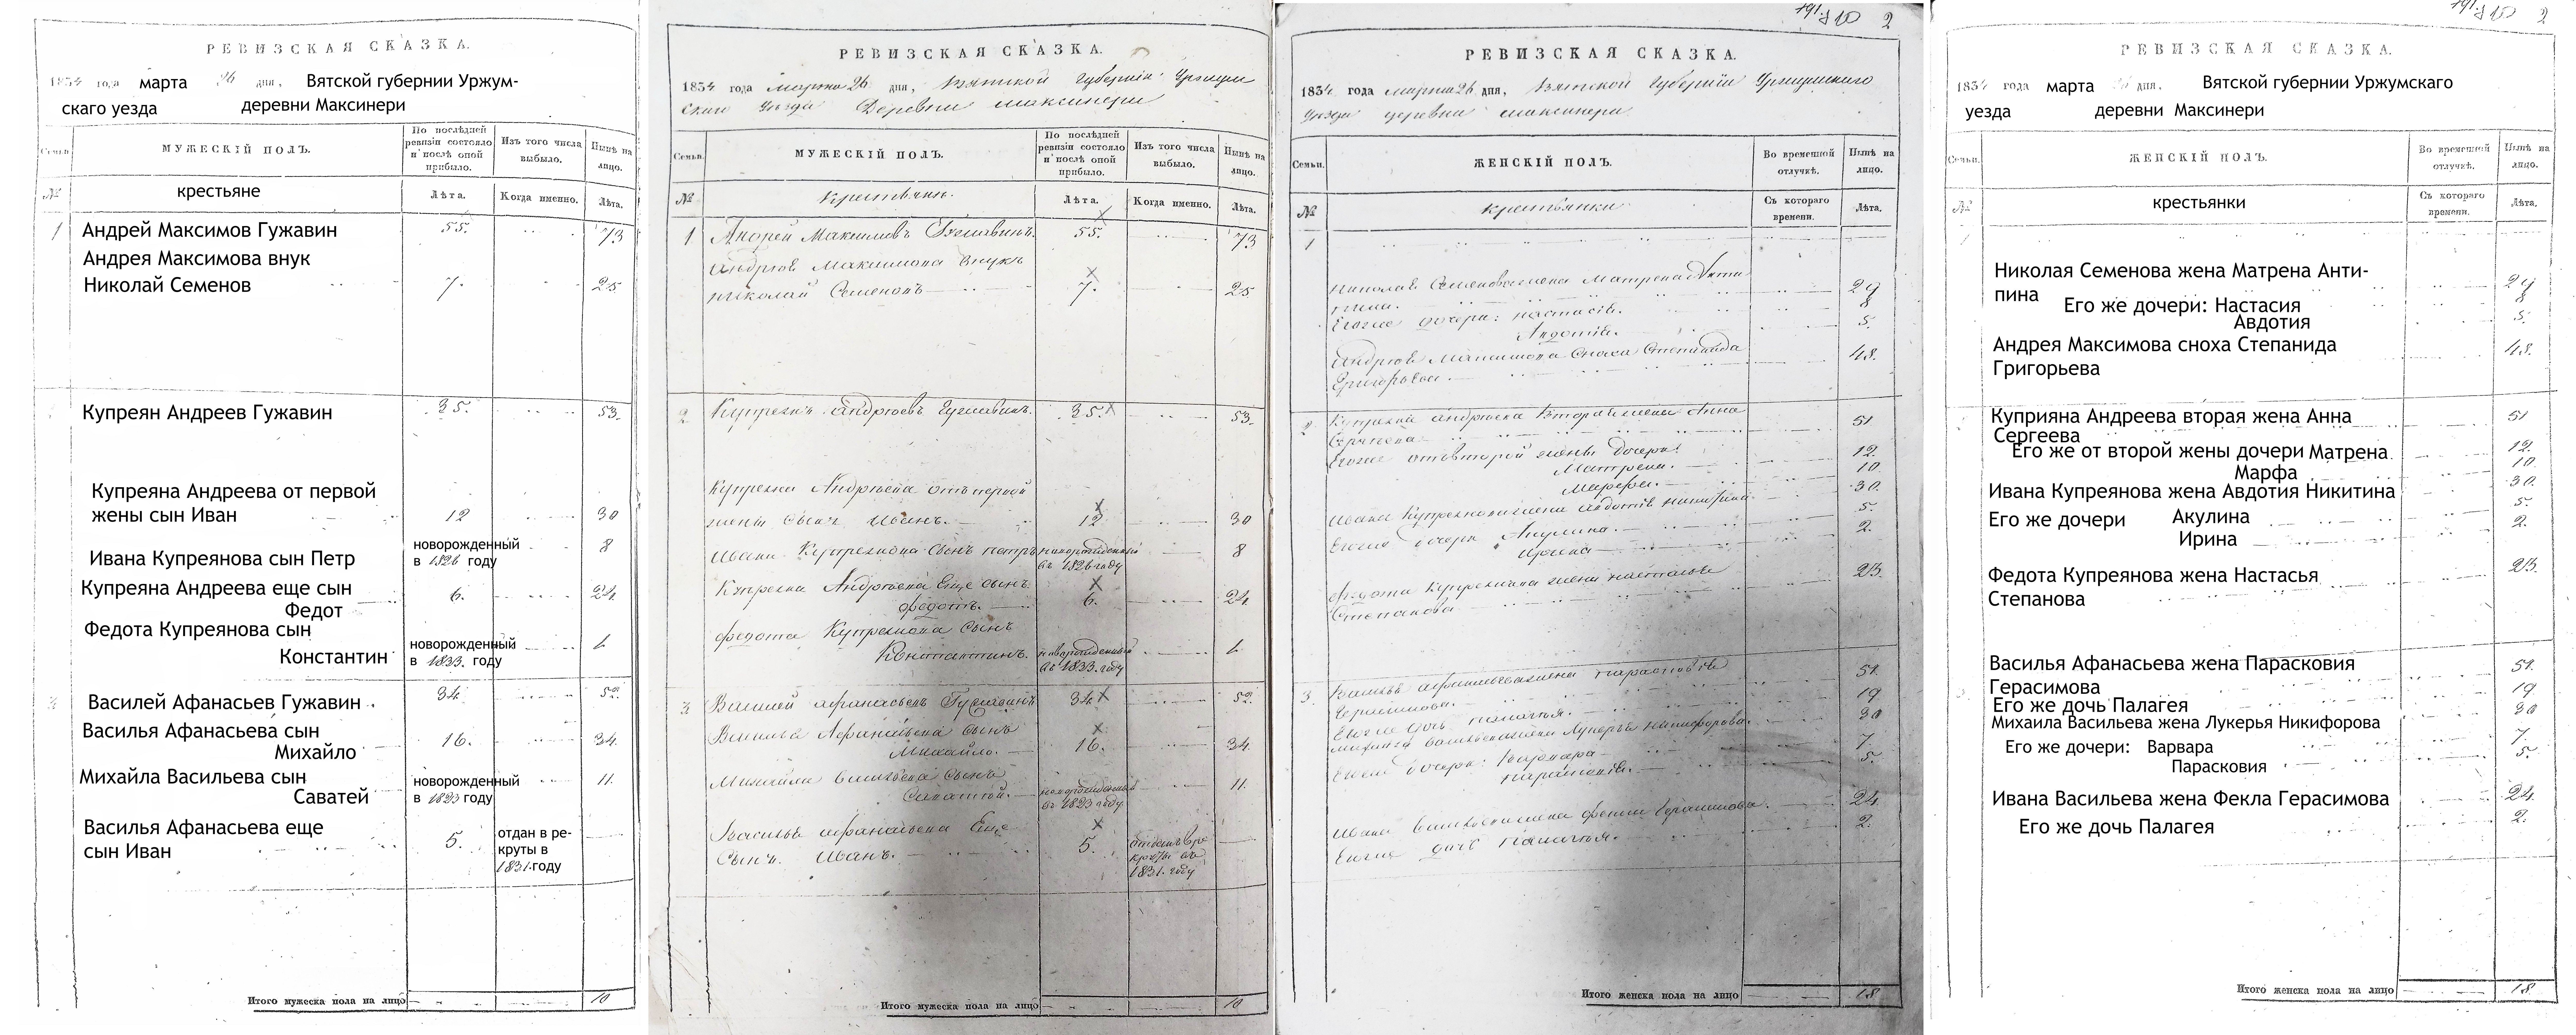 РЕВИЗСКАЯ СКАЗКА.
1834 года марта 26 дня, Вятской губернии Уржум-
скаго уезда деревни Максинери
Семьи. МУЖЕСКІЙ ПОЛЪ. По послѣдней ревизіи состояло и послѣ оной прибыло. Изъ того числа выбыло. Нынѣ на лицо.
№ крестьяне Лѣта. Когда именно. Лѣта.
1 Андрей Максимов Гужавин 55. 73
Андрея Максимова внук
Николай Семенов 7. 25
Купреян Андреев Гужавин 35. 53.
Купреяна Андреева от первой
жены сын Иван 12 30
Ивана Купреянова сын Петр новорожденный в 1826 году 8
Купреяна Андреева еще сын
Федот 6. 24.
Федота Купреянова сын
Константин новорожденный в 1833. году 1
3 Василей Афанасьев Гужавин 34. 52.
Василья Афанасьева сын
Михайло 16. 34.
Михайла Васильева сын
Саватей новорожденный в 1823 году 11.
Василья Афанасьева еще
сын Иван 5. отдан в ре-
круты в
1831.году
Итого мужеска пола на лицо 10
РЕВИЗСКАЯ СКАЗКА.
1834 года марта 26 дня, Вятской Губерніи Уржум
скаго Уезда Деревни Максинери
Семьи. МУЖЕСКІЙ ПОЛЪ. По послѣдней ревизіи состояло и послѣ оной прибыло. Изъ того числа выбыло. Нынѣ на лицо.
№ Крестьяне. Лѣта. Когда именно. Лѣта.
1 Андрей Максимовъ Гужавинъ. 55. 73
Андрѣя Максимова внукъ
Николай Семеновъ 7. 25
2 Купреянъ Андрѣевъ Гужавинъ. 35. 53.
Купреяна Андрѣева отъ первой
жены сынъ Иванъ. 12 30
Ивана Купреянова сынъ Петръ новорожденный въ 1826 году 8
Купреяна Андрѣева Еще сынъ
Федотъ. 6. 24.
Федота Купреянова Сынъ
Константинъ. новорожденный въ 1833. году 1
3 Василей Афанасьевъ Гужавинъ 34 52.
Василья Афанасьева Сынъ
Михайло. 16. 34.
Михайла Васильева Сынъ
Саватей. новорожденный въ 1823 году 11.
Василья Афанасьева Еще
Сынъ Иванъ. 5. отданъ в ре
круты въ
1831. году
Итого мужеска пола на лицо 10
191. 2
РЕВИЗСКАЯ СКАЗКА.
1834 года марта 26 дня, Вятской Губерніи Уржумскаго
Уезда деревни Максинери
Семьи. ЖЕНСКІЙ ПОЛЪ. Во временной отлучкѣ. Нынѣ на лицо.
№ Крестьянки Съ котораго времени. Лѣта.
1
Николая Семенова жена Матрена Анти
пина. 29
Егоже дочери: Настасія. 8
Авдотія. 5.
Андрѣя Максимова Сноха Степанида 48.
Григорьева.
2 Купреяна Андрѣева вторая жена Анна 51
Сергѣева
Егоже отъ второй жены дочери:
Матрена. 12.
Марфа. 10
Ивана Купреянова жена Авдотія Никитина. 30.
Егоже дочери Акулина. 5.
Ирина 2.
Федота Купреянова жена Настасья 23.
Степанова
3. Василья Афанасьева жена Парасковія 51.
Герасимова.
Егоже дочь Палагѣя. 19
Михайла Васильева жена Лукерья Никифорова. 30
Егоже дочери: Варвара 7.
Парасковія. 5.
Ивана Васильева жена Фекла Герасимова. 24.
Егоже дочь Палагѣя. 2.
Итого женска пола на лицо 18.
191. 2
РЕВИЗСКАЯ СКАЗКА.
1834 года марта дня, Вятской губернии Уржумскаго
уезда деревни Максинери
Семьи. ЖЕНСКІЙ ПОЛЪ. Во временной отлучкѣ. Нынѣ на лицо.
№ крестьянки Съ котораго времени. Лѣта.
Николая Семенова жена Матрена Анти-
пина 29
Его же дочери: Настасия 8
Авдотия 5.
Андрея Максимова сноха Степанида 48.
Григорьева
Куприяна Андреева вторая жена Анна 51
Сергеева
Его же от второй жены дочери Матрена 12.
Марфа 10.
Ивана Купреянова жена Авдотия Никитина 30.
Его же дочери Акулина 5.
Ирина 2.
Федота Купреянова жена Настасья 23.
Степанова
Василья Афанасьева жена Парасковия 51.
Герасимова
Его же дочь Палагея 19
Михаила Васильева жена Лукерья Никифорова 30
Его же дочери: Варвара 7.
Парасковия 5.
Ивана Васильева жена Фекла Герасимова 24.
Его же дочь Палагея 2.
Итого женска пола на лицо 18.